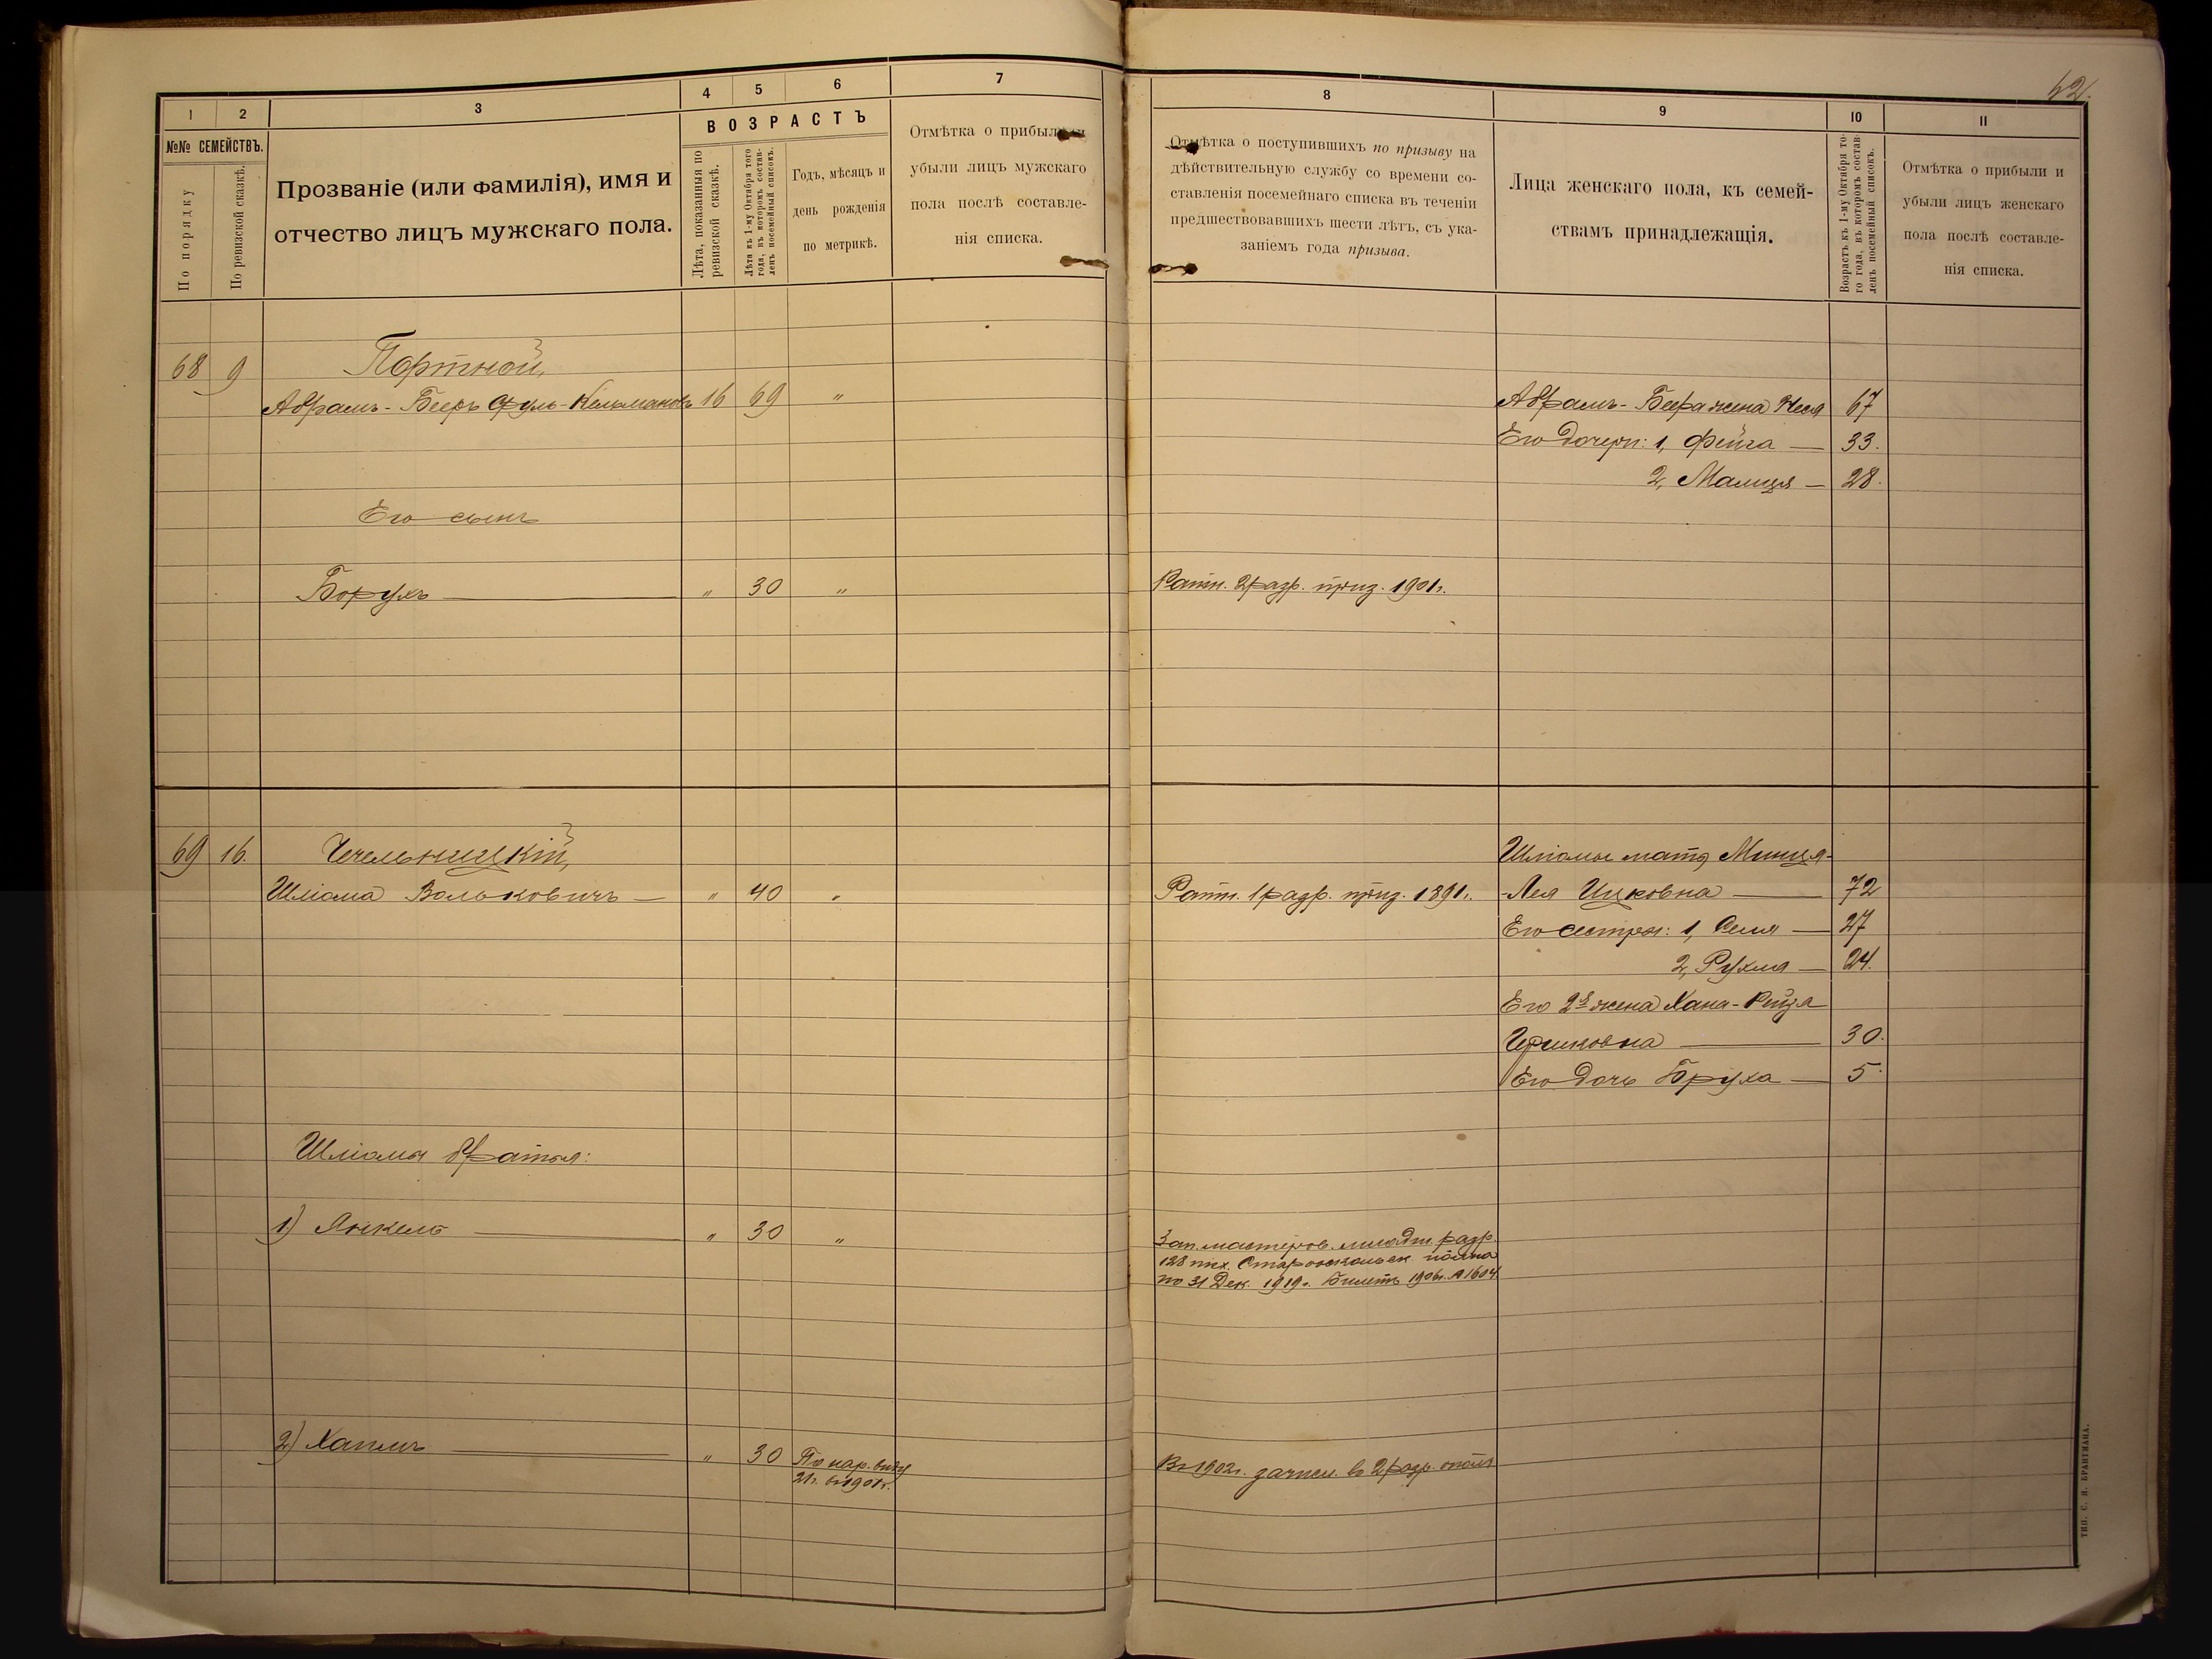 62.
1 2 3 4 5 6 7
№№ СЕМЕЙСТВЪ.
По порядку
По ревизской сказкѣ.
Прозваніе (или фамилія), имя и
отчество лицъ мужскаго пола.
ВОЗРАСТЪ
Лѣта, показанныя по
ревизской сказкѣ.
Лѣта къ 1-му Октября того
года, въ которомъ состав-
ленъ посемейный списокъ.
Годъ, мѣсяцъ и
день рожденія
по метрикѣ.
Отмѣтка о прибыли и
убыли лицъ мужскаго
пола послѣ составле-
нія списка.
68 9 Портной,
Абрамъ-Бееръ Кельмановъ 16 69 "
Его сынъ
Борухъ — " 30 "
69 16. Чечельницкій,
Шліома Вольковичъ — " 40 "
Шліомы братья:
1) Янкель — " 30 "
2) Хаимъ — " 30 По нар. виду
21 г. въ 1901 г.
8 9 10 11
Отмѣтка о поступившихъ по призыву на
дѣйствительную службу со времени со-
ставленія посемейнаго списка въ теченіи
предшествовавшихъ шести лѣтъ, съ ука-
заніемъ года призыва.
Лица женскаго пола, къ семей-
ствамъ принадлежащія.
Возрастъ къ 1-му Октября то-
го года, въ которомъ состав-
ленъ посемейный списокъ.
Отмѣтка о прибыли и
убыли лицъ женскаго
пола послѣ составле-
нія списка.
Абрамъ-Беера жена Неся 67
Его дочери: 1, Фейга — 33.
2, Малця — 28.
Ратн. 2 разр. приз. 1901 г.
Шліомы мать Минця-
Ратн. 1 разр. приз. 1891 г. -Лея Ицковна — 72
Его сестры: 1, Селя — 27
2, Рухля — 24.
Его 2я жена Хана-Рейзя
Гершковна — 30.
Его дочь Бруха — 5.
Зап. мастеров. младш. разр.
128 пѣх. Старооскольск. полка
по 31 Дек. 1919 г. Билетъ 1906 г. № 1604
Въ 1902 г. зачисл. въ 2 разр. ополч
ТИП. С. Н. БРАНТМАНА.